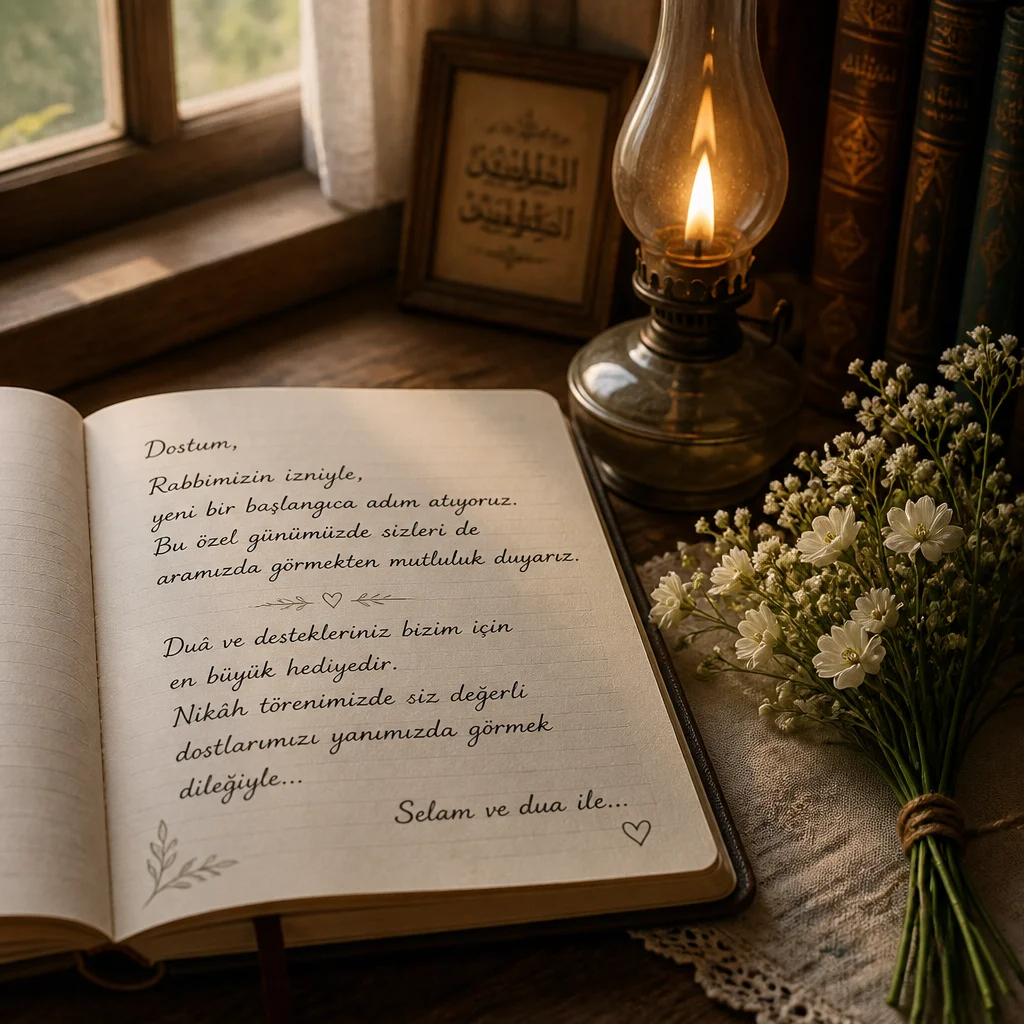 Dostum,
Rabbimizin izniyle,
yeni bir başlangıca adım atıyoruz.
Bu özel günümüzde sizleri de
aramızda görmekten mutluluk duyarız.
Duâ ve destekleriniz bizim için
en büyük hediyedir.
Nikâh törenimizde siz değerli
dostlarımızı yanımızda görmek
dileğiyle...
Selam ve dua ile...